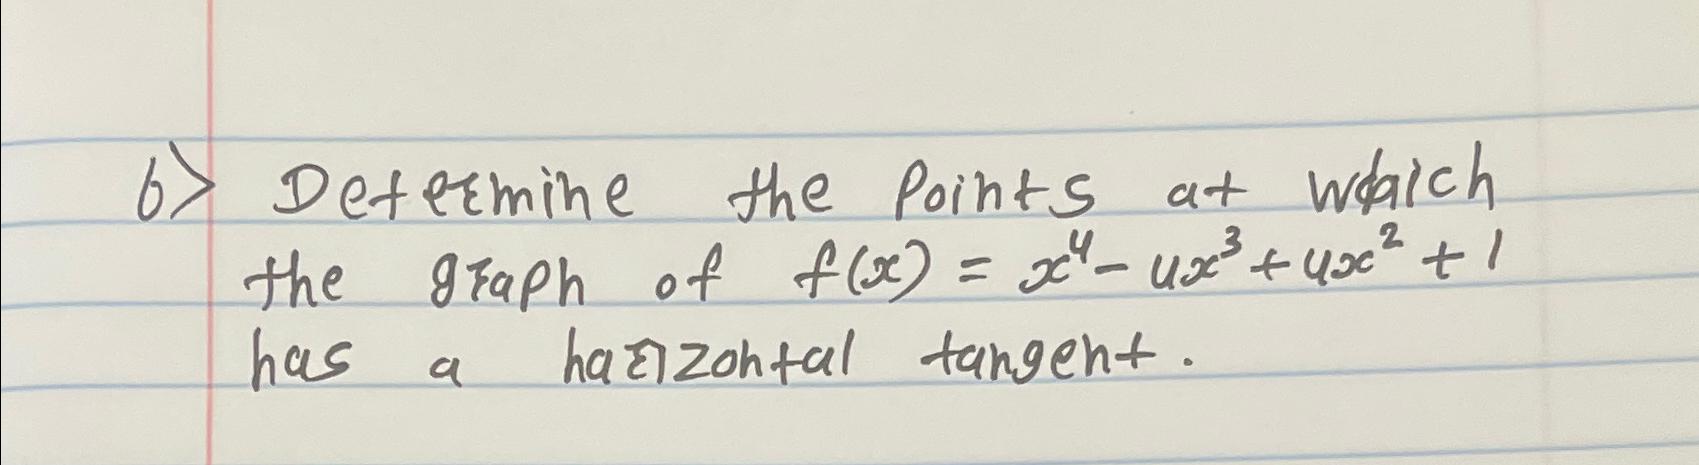 6> Determine the points at which
the graph of f(x) = x⁴ - 4x³ + 4x² + 1
has a harizontal tangent.